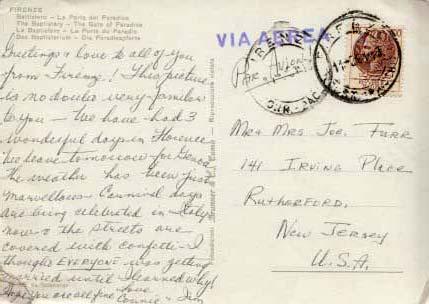 FIRENZE
Battistero - La Porta del Paradiso
The Baptistery - The Gate of Paradise
La Baptistère - La Porte du Paradis
Das Baptisterium - Die Paradiespforte
VIA AEREA
Par Avion
Greetings & love to all of you
from Firenze! This picture
is no doubt very familiar
to you - We have had 3
wonderful days in Florence
We leave tomorrow for
the weather has been just
marvellous - Carnival days
are being celebrated in Italy
now & the streets are
covered with confetti - I
thought EVERYONE was getting
married until I learned why!
Hope you are all fine Love
Connie & Jim
Mr & Mrs Joe. Furr
141 Irving Place
Rutherford,
New Jersey
U.S.A.